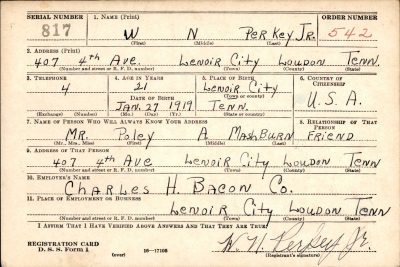 SERIAL NUMBER 1. NAME (Print) ORDER NUMBER
817 W N PERKEY JR. 542
(First) (Middle) (Last)
2. ADDRESS (Print)
407 4TH AVE. LENOIR CITY LOUDON TENN.
(Number and street or R. F. D. number) (Town) (County) (State)
3. TELEPHONE 4. AGE IN YEARS 5. PLACE OF BIRTH 6. COUNTRY OF CITIZENSHIP
4 21 LENOIR CITY
(Town or county)
DATE OF BIRTH
JAN. 27 1919 TENN. U.S.A.
(Exchange) (Number) (Mo.) (Day) (Yr.) (State or country)
7. NAME OF PERSON WHO WILL ALWAYS KNOW YOUR ADDRESS 8. RELATIONSHIP OF THAT PERSON
MR. POLEY A MASHBURN FRIEND
(Mr., Mrs., Miss) (First) (Middle) (Last)
9. ADDRESS OF THAT PERSON
407 4TH AVE LENOIR CITY LOUDON TENN
(Number and street or R. F. D. number) (Town) (County) (State)
10. EMPLOYER'S NAME
CHARLES H. BACON CO.
11. PLACE OF EMPLOYMENT OR BUSINESS
LENOIR CITY LOUDON TENN
(Number and street or R. F. D. number) (Town) (County) (State)
I AFFIRM THAT I HAVE VERIFIED ABOVE ANSWERS AND THAT THEY ARE TRUE.
REGISTRATION CARD
D. S. S. Form 1 (over) 16—17105 W. N. Perkey Jr.
(Registrant's signature)